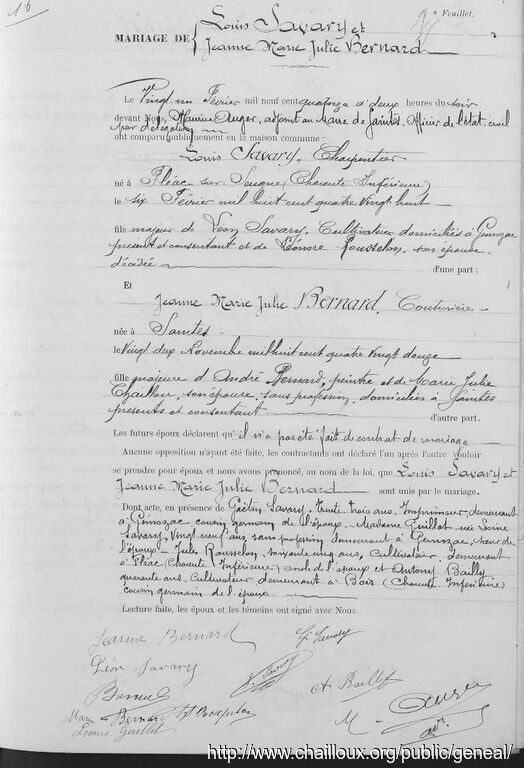 16
Feuillet.
Louis Savary et
MARIAGE DE
Jeanne Marie Julie Bernard
Le Vingt un Février mil neuf cent quatorze à deux heures du soir
devant Nous, Maurice Auger, adjoint au Maire de Saintes, Officier de l'état civil
par délégation
ont comparu publiquement en la maison commune :
Louis Savary, Charpentier
né à Fléac sur Seugne (Charente Inférieure)
le six Février mil huit cent quatre vingt huit
fils majeur de Léon Savary, Cultivateur, domicilié à Gémozac
présent et consentant et de Léonore Rousselon, son épouse,
décédée
d'une part ;
Et
Jeanne Marie Julie Bernard, Couturière
née à Saintes
le Vingt deux Novembre mil huit cent quatre vingt douze
fille majeure d'André Bernard, peintre et de Marie Julie
Chailloux, son épouse, sans profession, domiciliés à Saintes
présents et consentant
d'autre part.
Les futurs époux déclarent qu'il n'a pas été fait de contrat de mariage
Aucune opposition n'ayant été faite, les contractants ont déclaré l'un après l'autre vouloir
se prendre pour époux et nous avons prononcé, au nom de la loi, que Louis Savary et
Jeanne Marie Julie Bernard sont unis par le mariage.
Dont acte, en présence de Gaëtan Savary, trente trois ans, Imprimeur, demeurant
à Gémozac, cousin germain de l'époux. Madame Guillot née Savary, Vingt neuf ans, sans profession, demeurant à Gémozac, sœur de
l'époux - Jules Rousselon, soixante cinq ans, Cultivateur, demeurant
à Fléac (Charente Inférieure) oncle de l'époux et Antony Bailly
quarante ans, Cultivateur, demeurant à Bois (Charente Inférieure)
cousin germain de l'époux
Lecture faite, les époux et les témoins ont signé avec Nous.
Jeanne Bernard
G. Savary
Léon Savary
Bernard
A. Bailly
Auger
Marie Bernard
M
Léonie Guillot
http://www.chailloux.org/public/geneal/